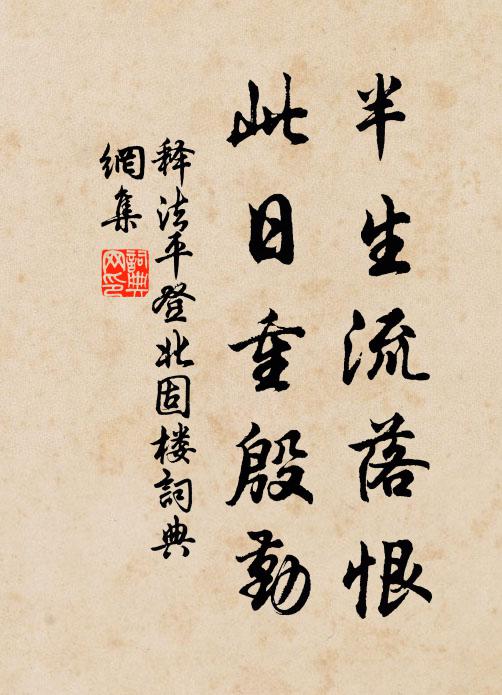 半生流落恨
此日重殷勤
释法平登北固楼詞典
網集
詞典网印